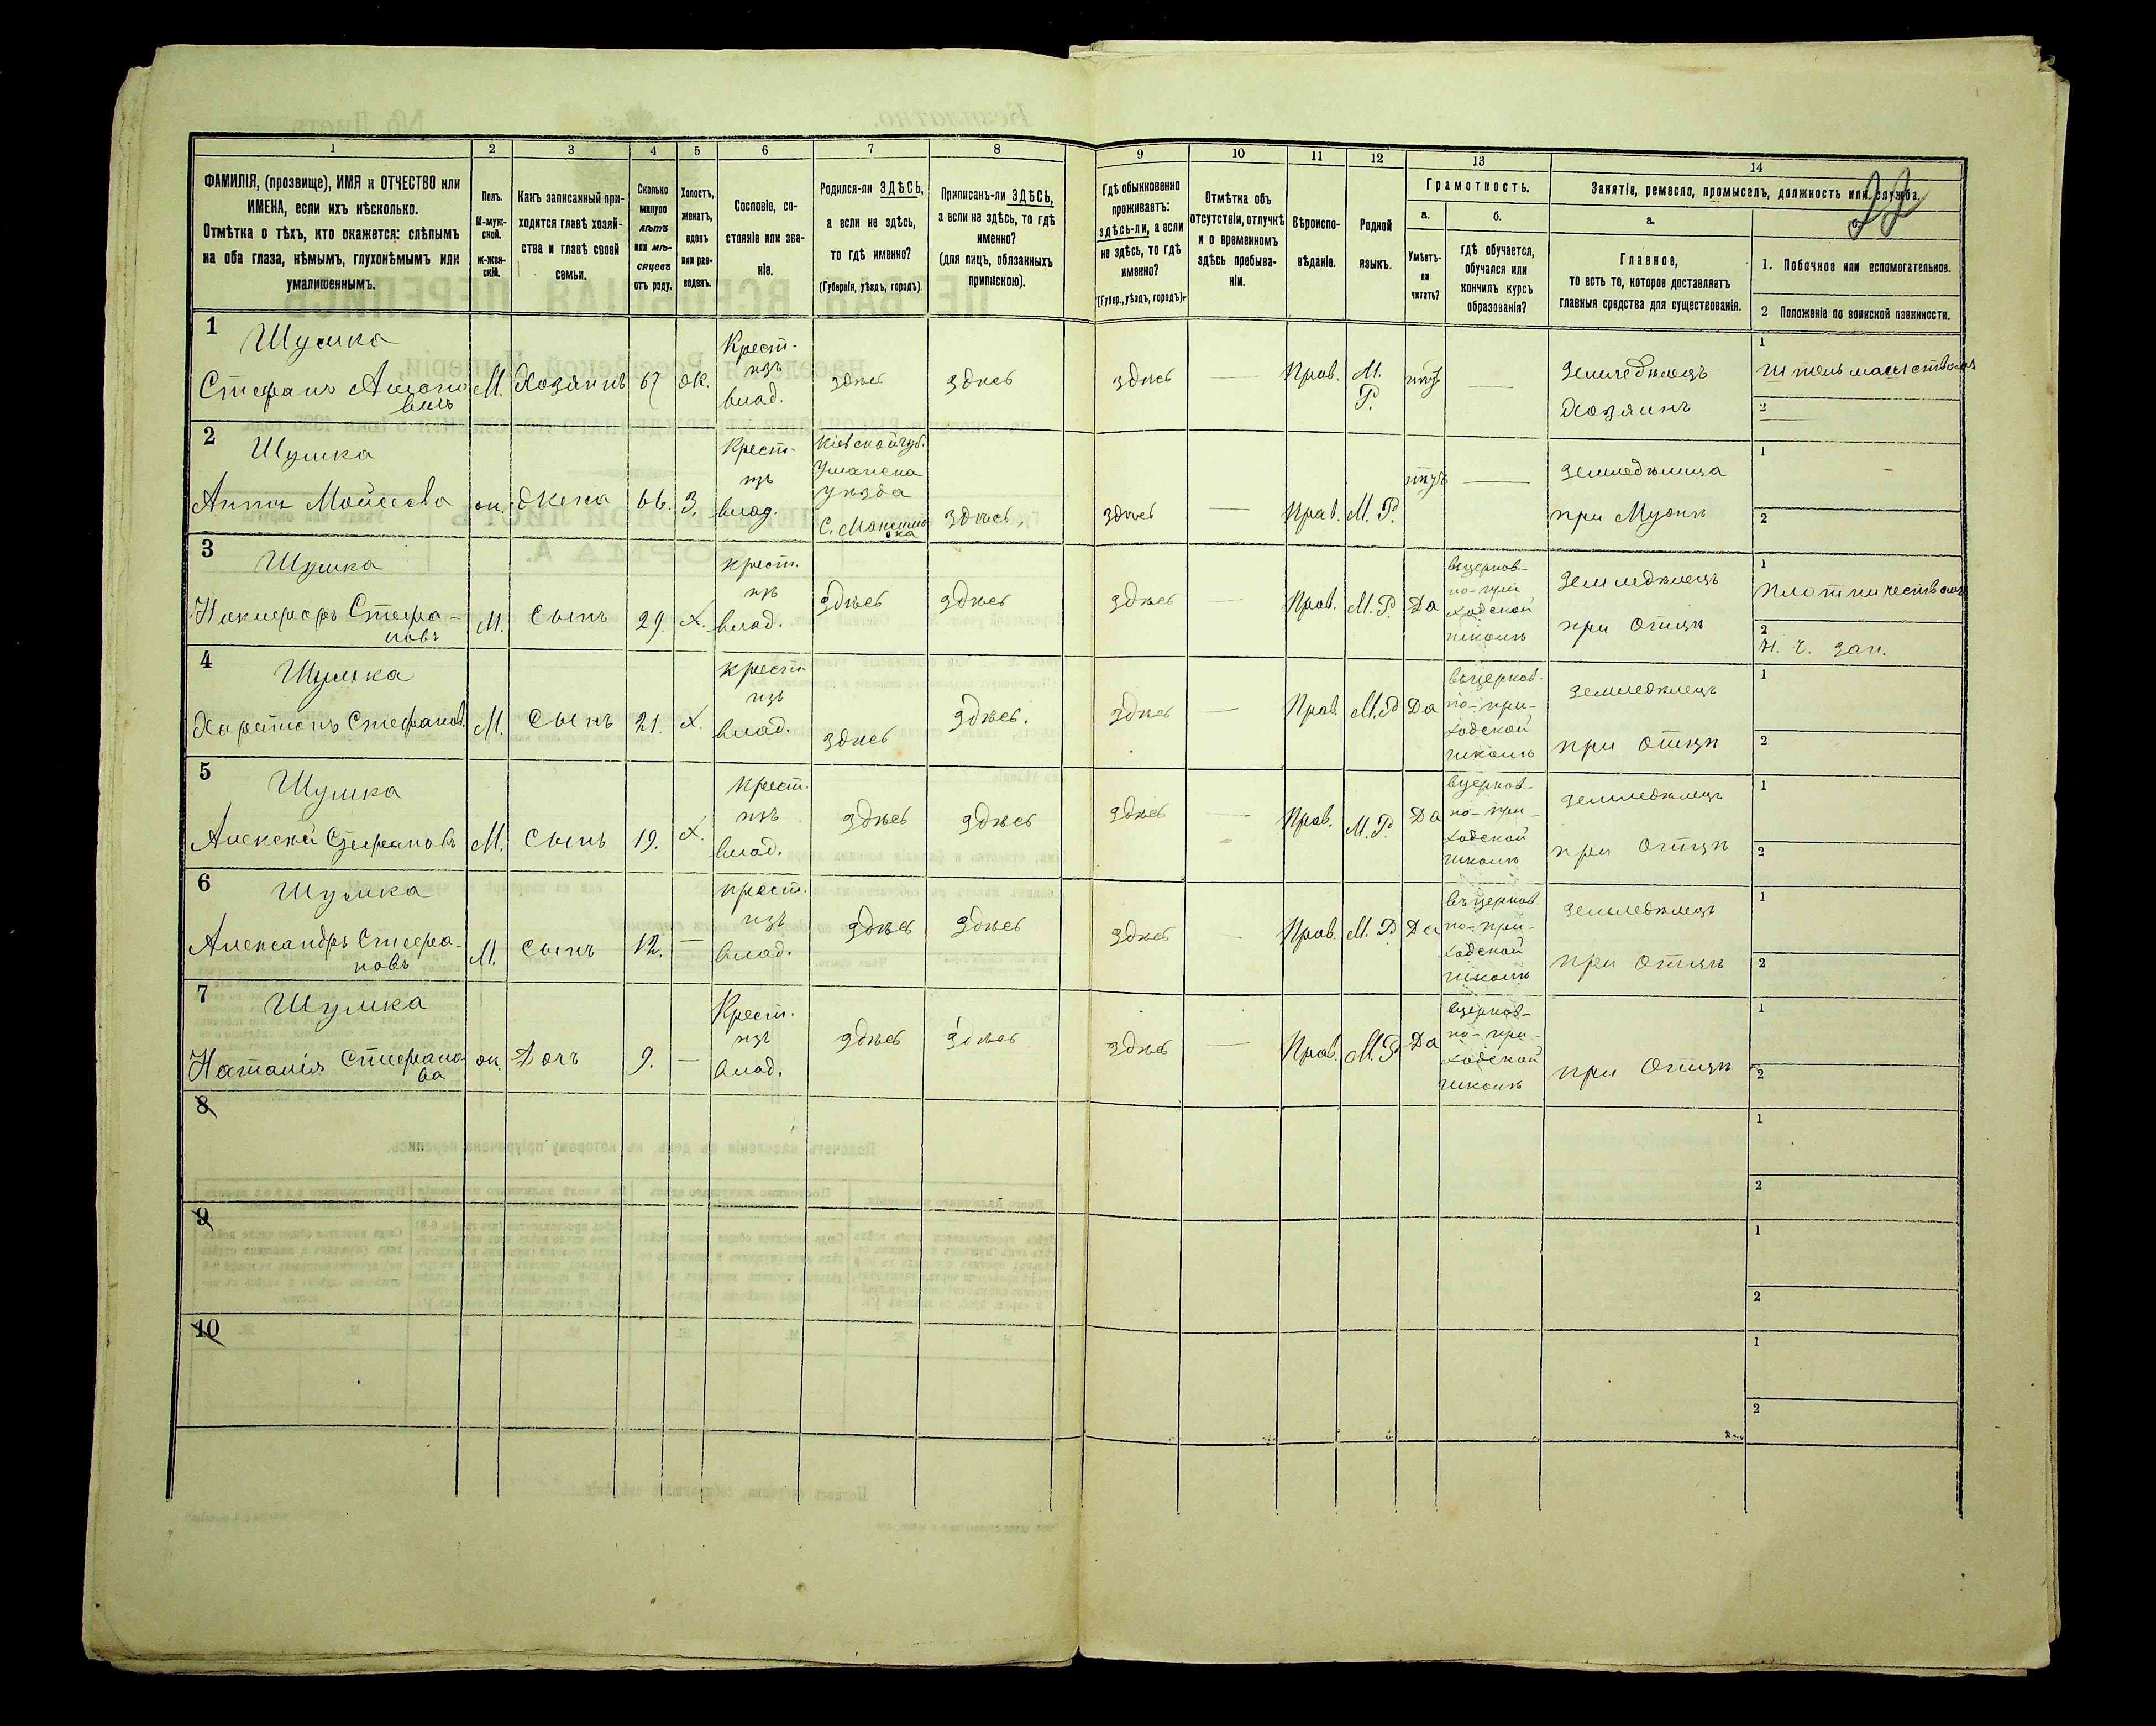 1 2 3 4 5 6 7 8 9 10 11 12 13 14
ФАМИЛІЯ, (прозвище), ИМЯ и ОТЧЕСТВО или
ИМЕНА, если ихъ нѣсколько.
Отмѣтка о тѣхъ, кто окажется: слѣпымъ
на оба глаза, нѣмымъ, глухонѣмымъ или
умалишеннымъ.
Полъ.
М-муж-
ской.
Ж-жен-
скій.
Какъ записанный при-
ходится главѣ хозяй-
ства и главѣ своей
семьи.
Сколько
минуло
лѣтъ
или мѣ-
сяцевъ
отъ роду.
Холостъ,
женатъ,
вдовъ
или раз-
веденъ.
Сословіе, со-
стояніе или зва-
ніе.
Родился-ли ЗДѢСЬ,
а если не здѣсь,
то гдѣ именно?
(Губернія, уѣздъ, городъ).
Приписанъ-ли ЗДѢСЬ,
а если не здѣсь, то гдѣ
именно?
(для лицъ, обязанныхъ
припискою).
Гдѣ обыкновенно
проживаетъ:
здѣсь-ли, а если
не здѣсь, то гдѣ
именно?
(Губер., уѣздъ, городъ).
Отмѣтка объ
отсутствіи, отлучкѣ
и о временномъ
здѣсь пребыва-
ніи.
Вѣроиспо-
вѣданіе.
Родной
языкъ.
Грамотность.
а.
Умѣетъ-
ли
читать?
б.
гдѣ обучается,
обучался или
кончилъ курсъ
образованія?
Занятія, ремесло, промыселъ, должность или служба.
а.
Главное,
то есть то, которое доставляетъ
главныя средства для существованія.
1. Побочное или вспомогательное.
2 Положеніе по воинской повинности.
1
Шумка
Стефанъ
М. Хозяинъ 67 Ж.
Крест.
изъ
влад.
здѣсь здѣсь здѣсь — Прав. М.
Р.
—
Земледѣлецъ
Хозяинъ
1
2
2
Шумка
Анна Моисеева
ж. Жена 66. З.
Крест.
изъ
влад.
Кіевской губ.
Уманска
уѣзда
здѣсь, здѣсь — Прав. М. Р.
—
земледѣлица
при Мужѣ
1
2
3
Шумка
Никифоръ Стефа-
новъ
М. Сынъ 29. Х.
крест.
изъ
влад.
здѣсь здѣсь здѣсь — Прав. М. Р. Да
въ церков-
но-при
ходской
школѣ
земледѣлецъ
при Отцѣ
1
Плотничествомъ
2
4
Шумка
Харитонъ Стефанов.
М. Сынъ 21. Х.
крест.
изъ
влад.
здѣсь здѣсь. здѣсь — Прав. М. Р Да
въ церков.
но-при-
ходской
школѣ
земледѣлецъ
при отцѣ
1
2
5
Шумка
Алексѣй Стефановъ
М. Сынъ 19. Х.
крест.
изъ
влад.
здѣсь здѣсь здѣсь — Прав. М. Р. Да
вцерков-
но-при-
ходской
школѣ
земледѣлецъ
при Отцѣ
1
2
6
Шумка
Александръ Стефа-
новъ
М. Сынъ 12. —
крест.
изъ
влад.
здѣсь здѣсь здѣсь Прав. М. Р Да
въ церков
но-при-
ходской
школѣ
земледѣлецъ
при Отцѣ
1
2
7
Шумка
Наталія Стефано-
ва
ж. Дочь 9. —
Крест.
изъ
влад.
здѣсь здѣсь здѣсь — Прав. М. Р Да
вцерков-
но-при-
ходской
школѣ
при Отцѣ
1
2
8
1
2
9
1
2
10
1
2